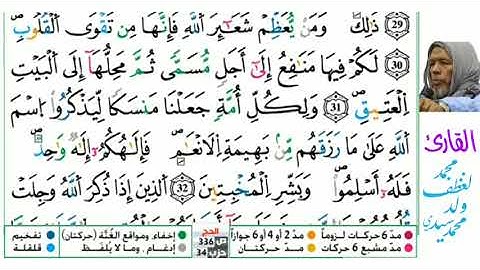 29 ذَٰلِكَۖ وَمَن يُعَظِّمْ شَعَـٰٓئِرَ ٱللَّهِ فَإِنَّهَا مِن تَقْوَى ٱلْقُلُوبِۖ
30 لَكُمْ فِيهَا مَنَـٰفِعُ إِلَىٰٓ أَجَلٍ مُّسَمًّى ثُمَّ مَحِلُّهَآ إِلَى ٱلْبَيْتِ
ٱلْعَتِيقِۖ 31 وَلِكُلِّ أُمَّةٍ جَعَلْنَا مَنسَكًا لِّيَذْكُرُوا۟ ٱسْمَ
ٱللَّهِ عَلَىٰ مَا رَزَقَهُم مِّنۢ بَهِيمَةِ ٱلْأَنْعَـٰمِۖ فَإِلَـٰهُكُمْ إِلَـٰهٌ وَٰحِدٌۖ
فَلَهُۥٓ أَسْلِمُوا۟ۖ وَبَشِّرِ ٱلْمُخْبِتِينَ 32 ٱلَّذِينَ إِذَا ذُكِرَ ٱللَّهُ وَجِلَتْ
القارئ
محمد
لغظف
ولد
محمد سيدي
مدّ 6 حركات لزوماً مدّ 2 أو 4 أو 6 جوازاً
مدّ مشبع 6 حركات مدّ حركتان
الحج
ص 336
حزب 34
إخفاء، ومواقع الغُنَّة (حركتان) تفخيم
إدغام، وما لا يُلفَظ قلقلة